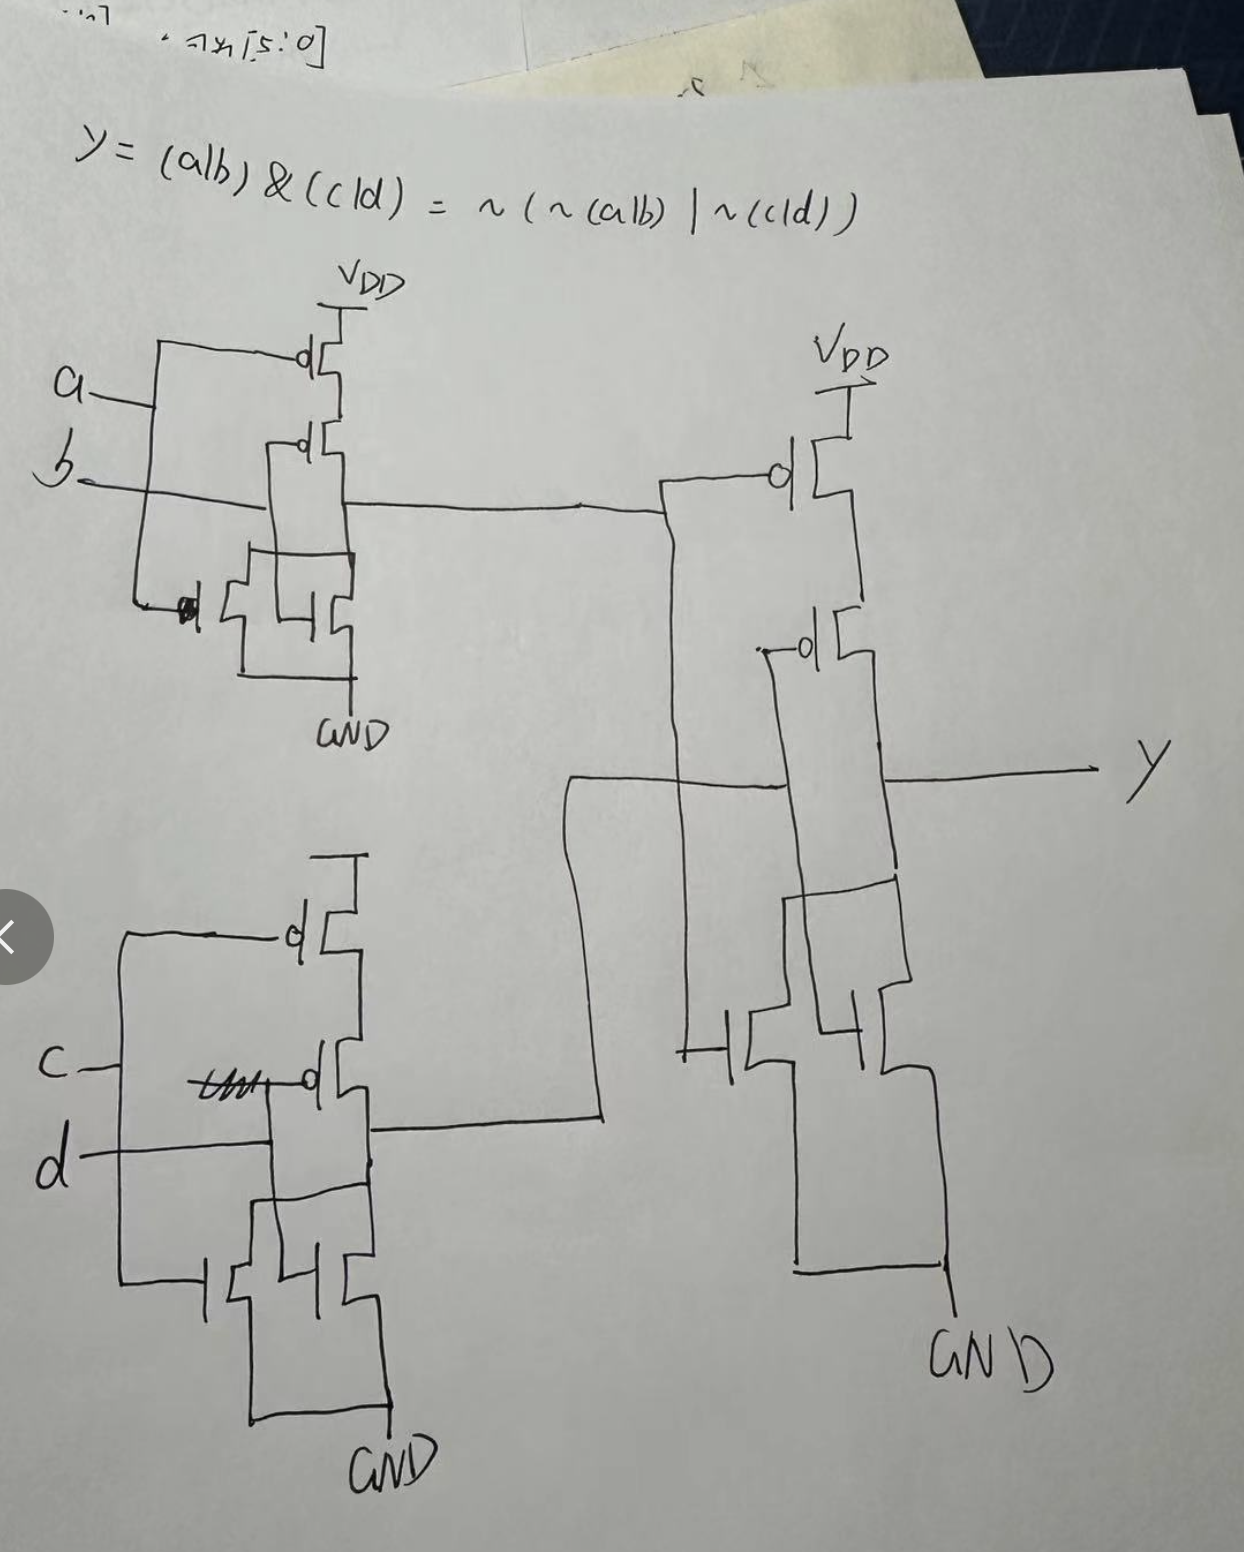 [5:0]
y = (a|b) & (c|d) = ~(~(a|b) | ~(c|d))
VDD
VDD
a
b
GND
y
c
d
GND
GND